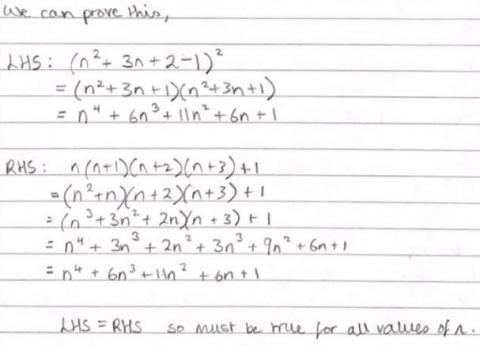 We can prove this,
LHS: (n² + 3n + 2 - 1)²
= (n² + 3n + 1)(n² + 3n + 1)
= n⁴ + 6n³ + 11n² + 6n + 1
RHS: n(n+1)(n+2)(n+3) + 1
= (n² + n)(n + 2)(n + 3) + 1
= (n³ + 3n² + 2n)(n + 3) + 1
= n⁴ + 3n³ + 2n² + 3n³ + 9n² + 6n + 1
= n⁴ + 6n³ + 11n² + 6n + 1
LHS = RHS so must be true for all values of n.